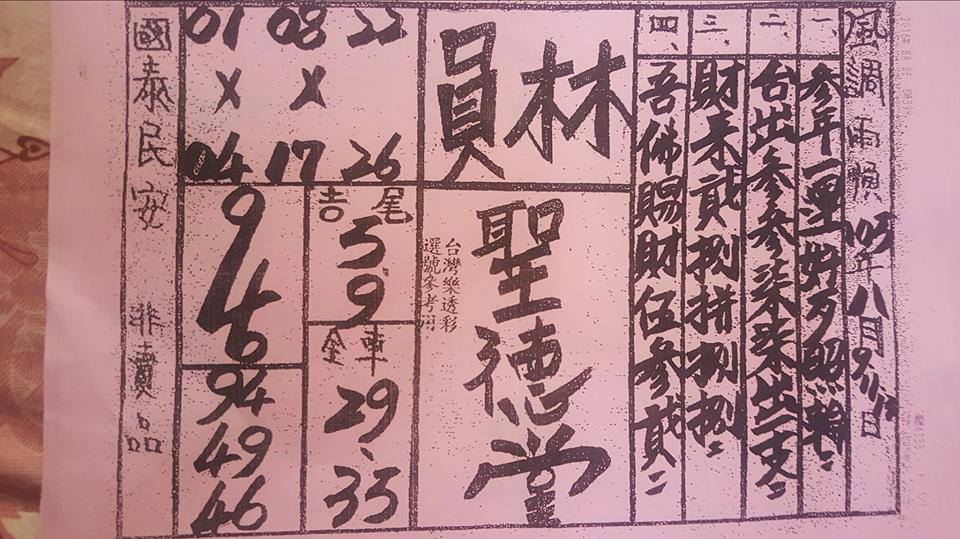 風調雨順 105年八月9.11.12日
一、參年一運好歹照輪
二、台出參參柒柒出二支
三、財来貳捌拼捌捌
四、吾佛賜財伍參貳
員林
聖德堂
台灣樂透彩
選號參考用
01 08 22
X X
04 17 26
吉尾
5
9
全車
29
35
9
4
6
94
49
46
國泰民安 非賣品